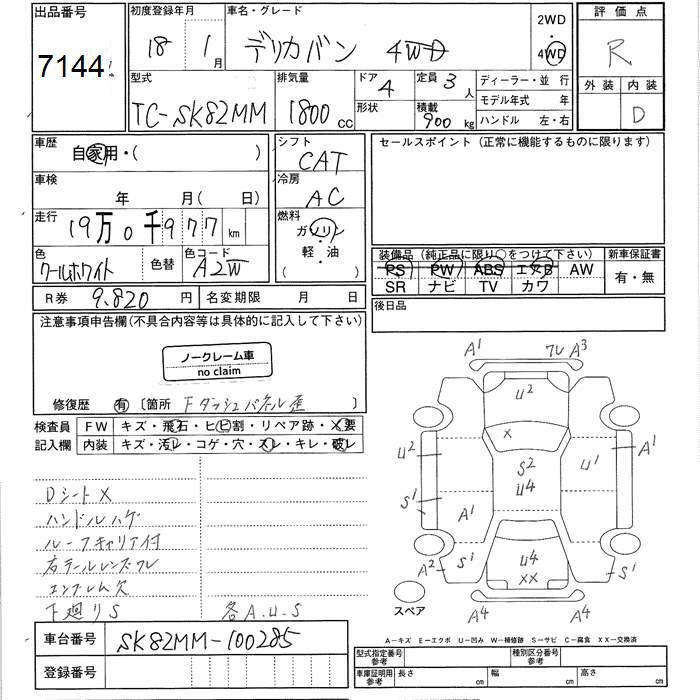 出品番号 初度登録年月 車名・グレード 2WD ・ 4WD 評価点
7144 18年 1月 デリカバン 4WD R
型式 排気量 ドア 4 定員 3人 ディーラー・並行 外装 内装
TC-SK82MM 1800cc 形状 積載 900kg モデル年式 年 D
ハンドル 左・右
車歴 自家用・( ) シフト CAT セールスポイント (正常に機能するものに限ります)
車検 年 月( 日) 冷房 AC
走行 19万0千977km 燃料 ガソリン・軽・油 ( )
色 クールホワイト 色替 色コード A2W
装備品 (純正品に限り○をつけて下さい) 新車保証書
PS PW ABS エアB AW 有・無
SR ナビ TV カワ
R券 9,820円 名変期限 月 日 後日品
注意事項申告欄(不具合内容等は具体的に記入して下さい)
ノークレーム車
no claim
修復歴 有 〔箇所 Fダッシュパネル歪 〕
検査員 FW キズ・飛石・ヒビ割・リペア跡・X要
記入欄 内装 キズ・汚レ・コゲ・穴・スレ・キレ・破レ
DシートX
ハンドルハゲ
ルーフキャリア付
右テールレンズワレ
エンブレム欠
下廻りS 各A.U.S
A1 ワレ A3
U2
X
U2 S2 U1 A1
U4
S1 A1
A2 S1 U4 S1
XX
スペア A4 A4
A-キズ E-エクボ U-凹み W-補修跡 S-サビ C-腐食 XX-交換済
車台番号 SK82MM-100285
登録番号
型式指定番号 参考 種別区分番号 参考
車庫証明用 参考 長さ cm 幅 cm 高さ cm